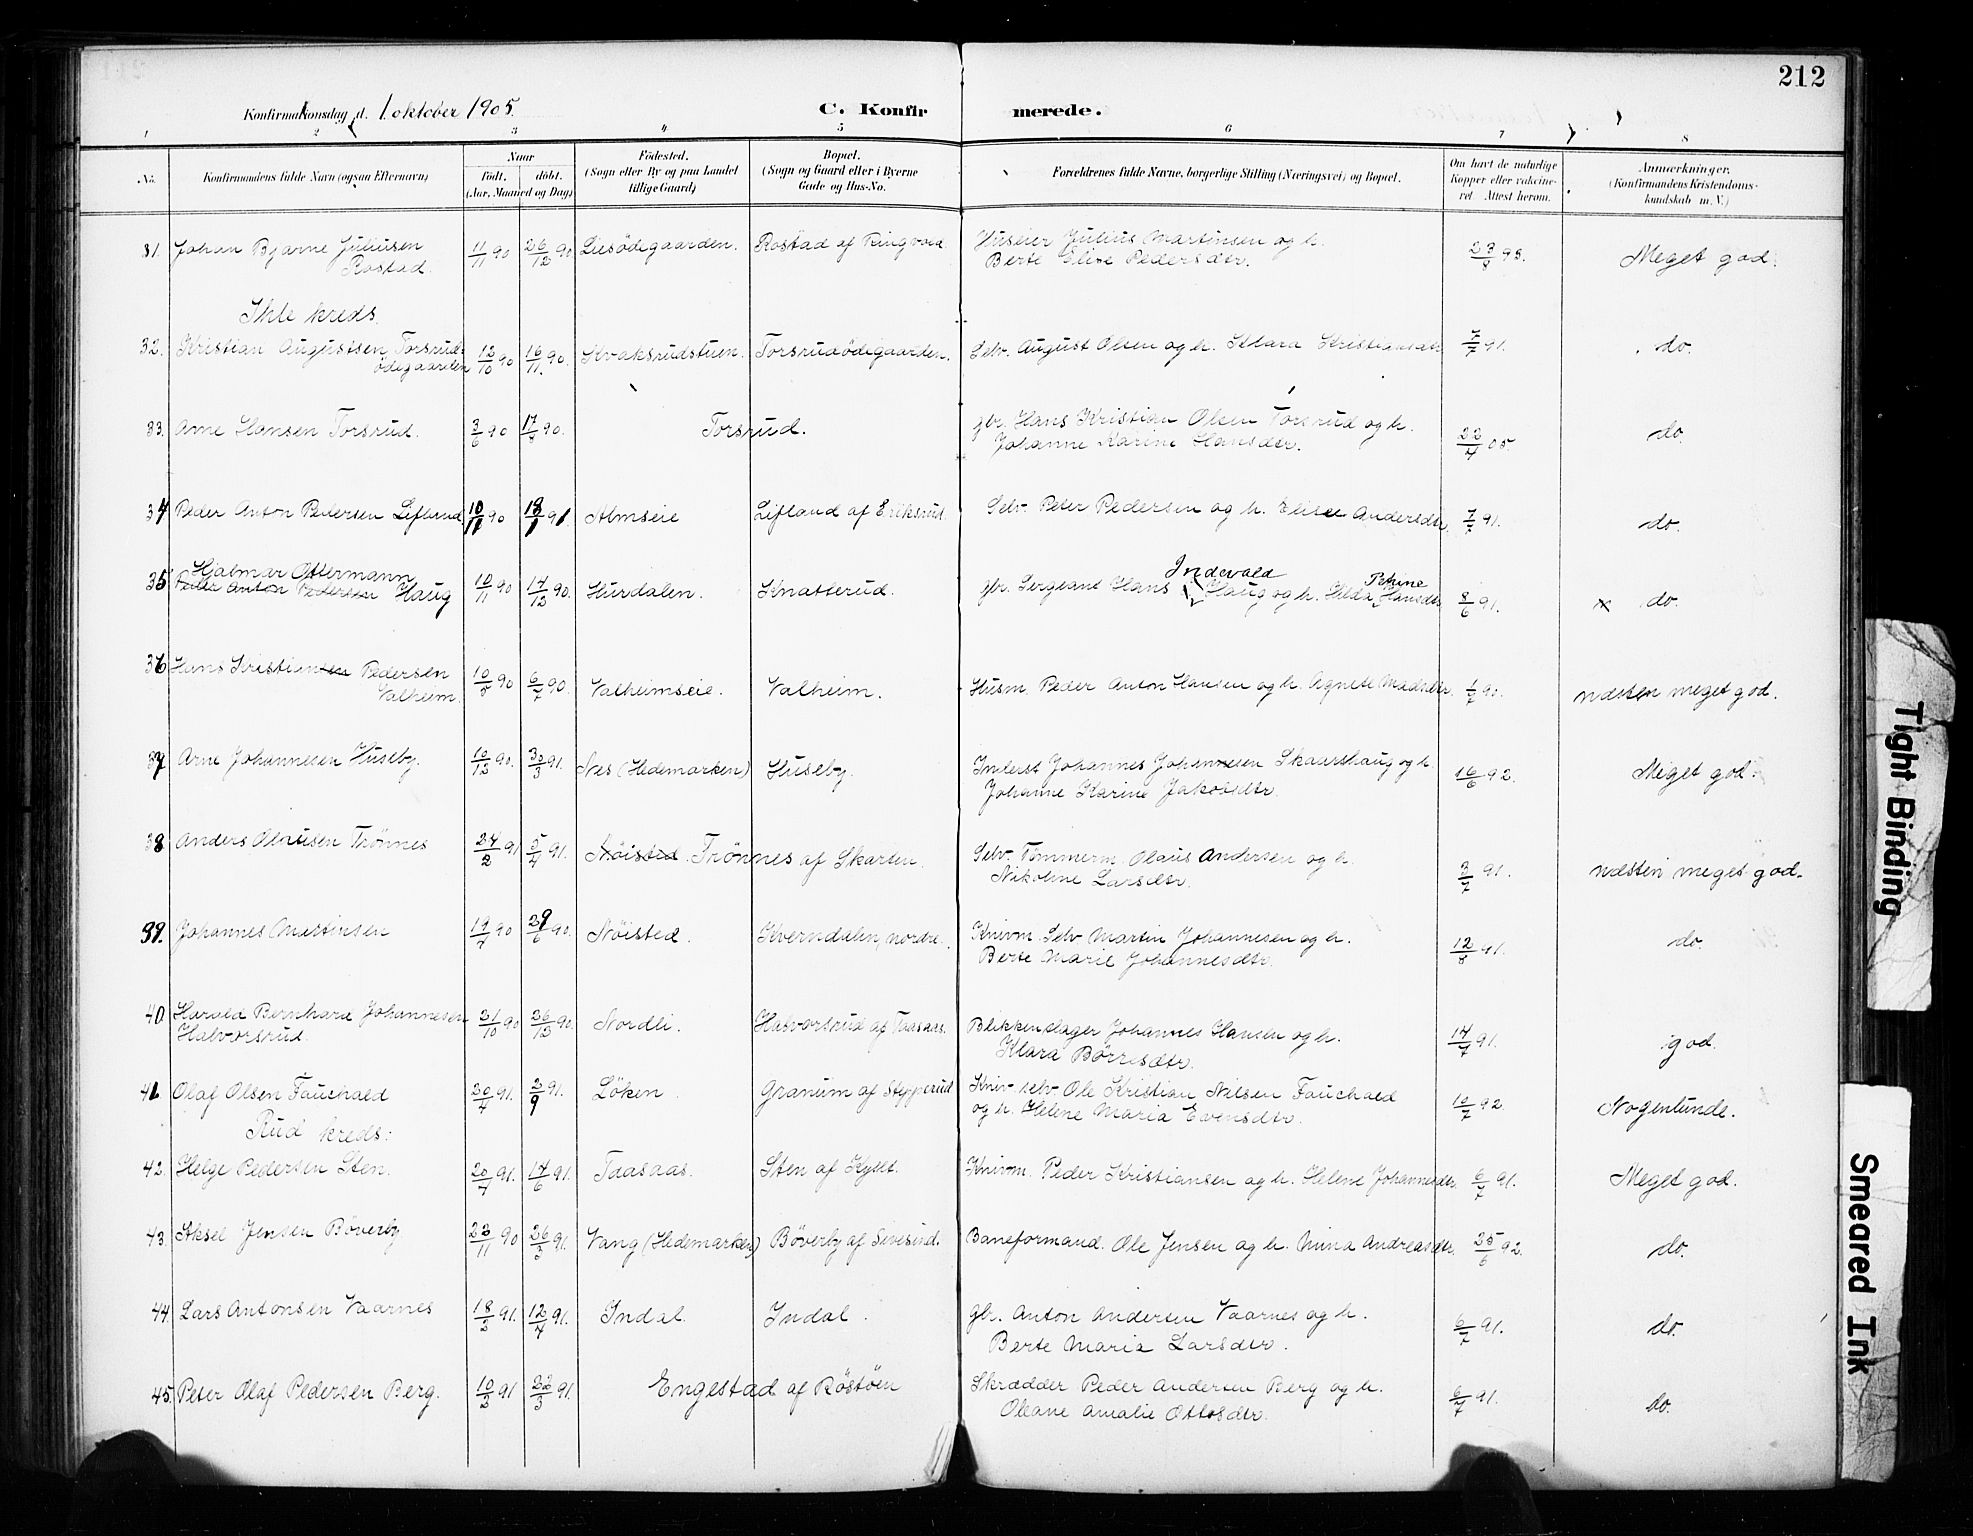 212
Konfirmationsdag d. 1 oktober 1905.
C. Konfir merede.
1 2 3 4 5 6 7 8
No. Konfirmandens fulde Navn (ogsaa Efternavn) Naar Födt. döbt. (Aar, Maaned og Dag) Födested. (Sogn eller By og paa Landet tillige Gaard) Bopæl. (Sogn og Gaard eller i Byerne Gade og Hus-No. Forældrenes fulde Navne, borgerlige Stilling (Næringsvei) og Bopæl. Om havt de naturlige Kopper eller vakcineret Attest herom. Anmærkninger. (Konfirmandens Kristendomskundskab m. V.)
31. Johan Bjarne Juliusen 11/11 90 26/12 90 Liesödegaarden. Rostad af Ringvold Huseier Julius Martinsen og h. 23/8 95. Meget god.
Rostad. Berte Eline Pedersdtr.
Ihle kreds.
32. Kristian Augustsen Torsrud- 12/10 90 16/11 90. Kvaksrudstuen. Torsrudödegaarden. Selv. August Olsen og h. Klara Kristiansdtr. 7/7 91. do.
ödegaarden
33. Arne Hansen Torsrud. 3/6 90 17/8 90. Torsrud. gbr. Hans Kristian Olsen Torsrud og h. 22/4 05. do.
Johanne Karine Hansdtr.
34 Peder Anton Pedersen Lifland 10/11 90 18/1 91 Almseie Lifland af Eriksrud. Selv. Peter Pedersen og h. Elise Andersdtr. 7/7 91. do.
35 Hjalmar Ottermann 10/11 90 14/12 90. Hurdalen. Knatterud. gbr. Sergeant Hans Indevald Haug og h. Hilda Petrine Hansdtr. 8/6 91. x do.
Peder Anton Pedersen Haug
36 Hans Kristiansen Pedersen 10/5 90 6/7 90. Valheimseie. Valheim. Husm. Peder Anton Hansen og h. Agnete Madsdtr. 1/7 91. næsten meget god.
Valheim.
37 Arne Johannesen Huseby. 10/12 90. 30/3 91. Nes (Hedemarken) Huseby. Inderst Johannes Johannesen Skaarshaug og h. 16/6 92. Meget god.
Johanne Karine Jakobsdtr.
38 Anders Olausen Trönnes 24/2 91 5/4 91. Nöisted. Trönnes af Skarten. Selv. Tömmerm. Olaus Andersen og h. 3/7 91. næsten meget god.
Nikoline Larsdtr.
39. Johannes Martinsen 19/4 90 29/6 90. Nöisted. Kverndalen, nordre. Knivm. Selv Martin Johannesen og h. 12/8 91. do.
Berte Marie Johannesdtr.
40. Harald Bernhard Johannesen 31/10 90 26/12 90. Nordli. Halvorsrud af Taasaas. Blikkenslager Johannes Hansen og h. 14/7 91. god.
Halvorsrud. Klara Börresdtr.
41. Olaf Olsen Fauchald 30/4 91. 2/9 91. Löken. Granum af Stepperud Kniv- selv. Ole Kristian Nilsen Fauchald 10/7 92. Nogenlunde.
og h. Helene Maria Evensdtr.
Rud kreds:
42. Helge Pedersen Sten. 20/4 91. 14/6 91. Taasaas. Sten af Kyset. Knivm. Peder Kristiansen og h. Helene Johannesdtr. 6/7 91. Meget god.
43. Aksel Jensen Böverby 23/11 90 26/3 91. Vang (Hedemarken) Böverby af Sivesind. Baneformand. Ole Jensen og h. Mina Andreasdtr. 25/6 92. do.
44. Lars Antonsen Vaarnes 18/2 91. 12/4 91. Indal. Indal. gbr. Anton Andersen Vaarnes og h. 6/7 91. do.
Berte Maria Larsdtr.
45. Peter Olaf Pedersen Berg. 10/2 91 22/3 91. Engestad af Röstöen Skrædder Peder Andersen Berg og h. 6/7 91. do.
Oleane Amalie Ottosdtr.
Tight Binding
Smeared Ink